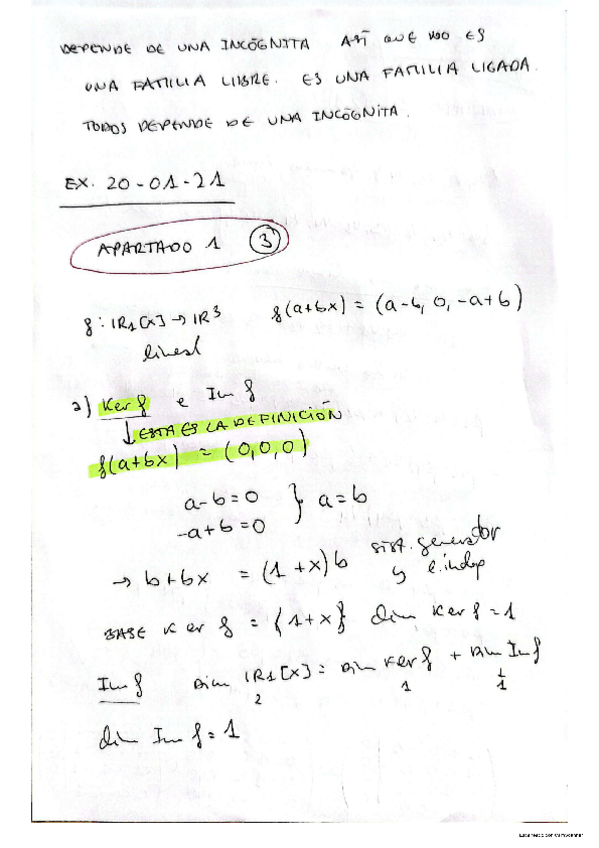 DEPENDE DE UNA INCÓGNITA ASÍ QUE NO ES
UNA FAMILIA LIBRE. ES UNA FAMILIA LIGADA.
TODOS DEPENDE DE UNA INCÓGNITA.
EX. 20-01-21
APARTADO 1 ③
f: IR1[x] → IR³ f(a+bx) = (a-b, 0, -a+b)
lineal
a) Ker f e Im f
↓ ESTA ES LA DEFINICIÓN
f(a+bx) = (0,0,0)
a-b=0 } a=b
-a+b=0
→ b+bx = (1+x)b sist. generador
y l. indep
BASE Ker f = {1+x} dim Ker f = 1
Im f Dim IR1[x] = Dim Ker f + Dim Im f
2 1 1
dim Im f = 1